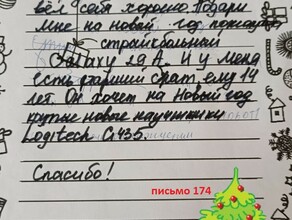 вёл себя хорошо. Подари
мне на новый год пожалуйста
страйкбольный
Galaxy 29 A. И у меня
есть старший брат, ему 14
лет. Он хочет на Новый год
крутые новые наушники
Logitech G435.
Спасибо!
письмо 174